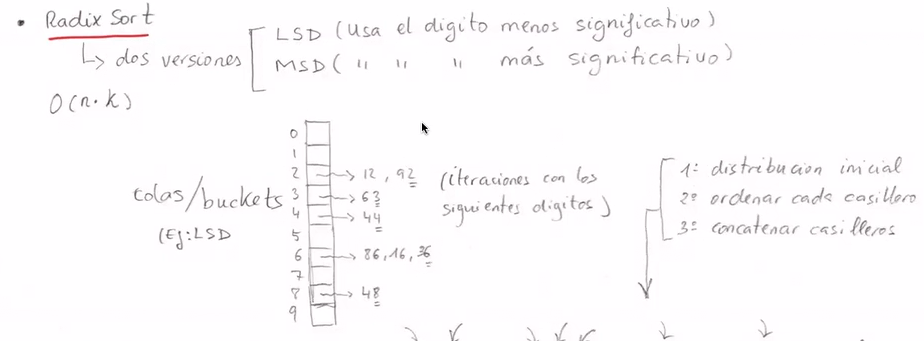 • Radix Sort
↳ dos versiones
LSD (usa el digito menos significativo)
MSD ( " " " más significativo)
O(n·k)
colas/buckets
(Ej: LSD
0
1
2 → 12, 92
3 → 63
4 → 44
5
6 → 86, 16, 36
7
8 → 48
9
(iteraciones con los
siguientes digitos)
1: distribucion inicial
2º ordenar cada casillero
3º concatenar casilleros